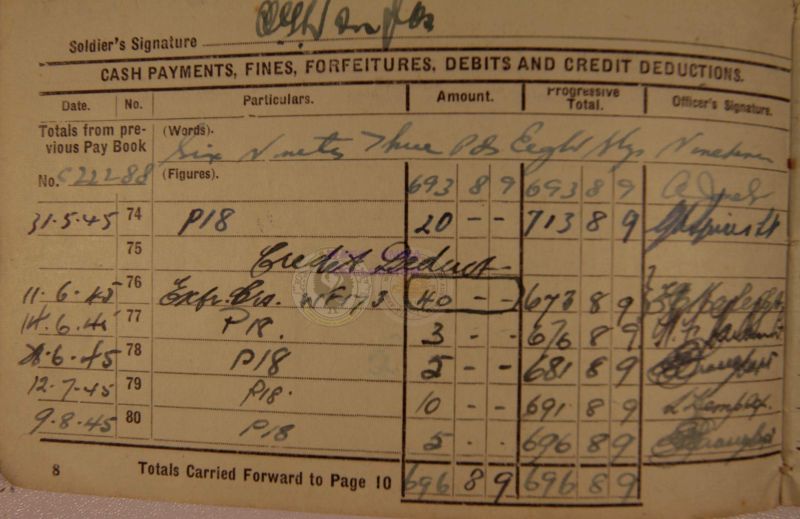 Soldier's Signature
CASH PAYMENTS, FINES, FORFEITURES, DEBITS AND CREDIT DEDUCTIONS.
Date. No. Particulars. Amount. Progressive Total. Officer's Signature.
Totals from pre- (Words). Six Ninety Three Pds Eight
vious Pay Book
No. C22288 (Figures). 693 8 9 693 8 9
31.5.45 74 P18 20 - - 713 8 9
75 Credit Deduct
11.6.45 76 40 - - 673 8 9
14.6.45 77 P18. 3 - - 676 8 9
6.45 78 P18 5 - - 681 8 9
12.7.45 79 P18. 10 - - 691 8 9
9.8.45 80 P18 5 - - 696 8 9
8 Totals Carried Forward to Page 10 696 8 9 696 8 9